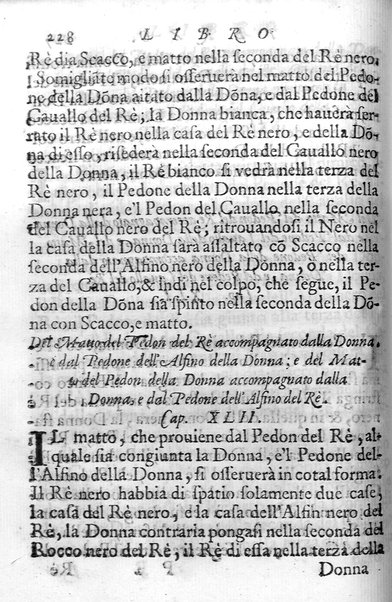 228 LIBRO
Rè dia Scacco, e matto nella seconda del Rè nero.
Somigliāte modo si osseruerà nel matto del Pedo-
no della Dōna aitato dalla Dōna, e dal Pedone del
Cauallo del Rè; la Donna bianca, che hauerà ser-
rato il Rè nero nella casa del Rè nero, e della Dō-
na di esso, risederà nella seconda del Cauallo nero
della Donna, il Rè bianco si vedrà nella terza del
Rè nero, il Pedone della Donna nella terza della
Donna nera, e'l Pedon del Cauallo nella seconda
del Cauallo nero del Rè; ritrouandosi il Nero nel
la casa della Donna sarà assaltato cō Scacco nella
seconda dell'Alfino nero della Donna, ò nella ter-
za del Cauallo, & indi nel colpo, che segue, il Pe-
don della Dōna sia spinto nella seconda della Dō-
na con Scacco, e matto.
Del Matto del Pedon del Rè accompagnato dalla Donna,
e dal Pedone dell'Alfino della Donna; e del Mat-
to del Pedon della Donna accompagnato dalla
Donna, e dal Pedone dell'Alfino del Rè.
Cap. XLII.
IL matto, che prouiene dal Pedon del Rè, al-
quale sia congiunta la Donna, e'l Pedone del-
l'Alfino della Donna, si osseruerà in cotal forma:
Il Rè nero habbia di spatio solamente due case,
la casa del Rè nero, e la casa dell'Alfin nero del
Rè, la Donna contraria pongasi nella seconda del
Rocco nero del Rè, il Rè di essa nella terza della
Donna